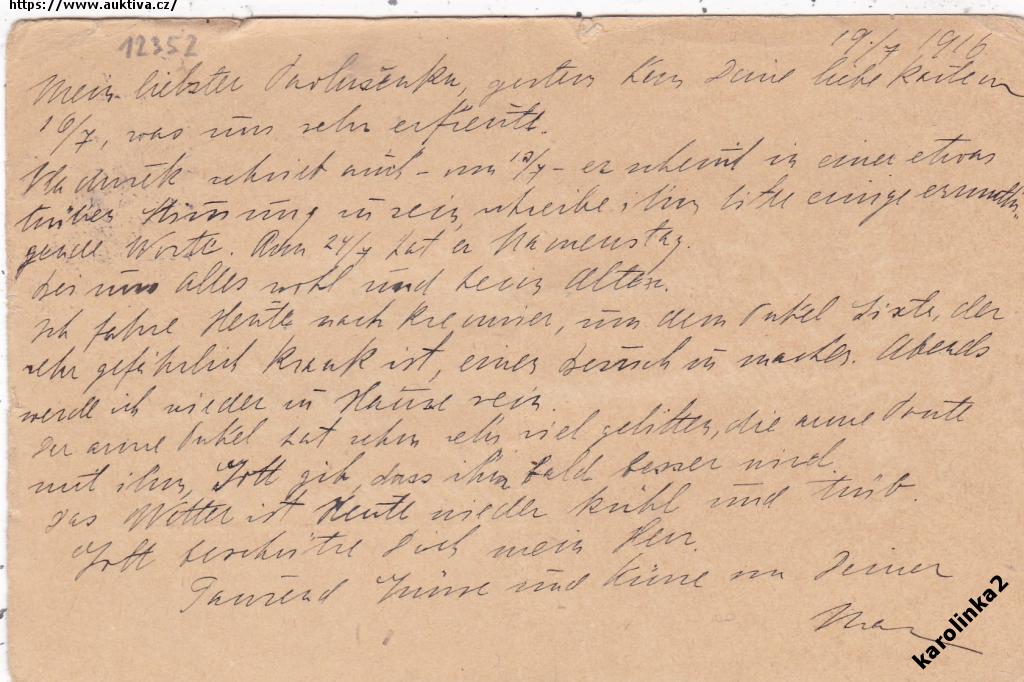 https://www.auktiva.cz/
12352
19./7 1916
Mein liebster, gestern kam Deine liebe Karte von
16/7, was uns sehr erfreute.
schrieb auch - vom - er scheint in einer etwas
trüben Stimmung zu sein, schreibe ihm bitte einige ermuthi-
gende Worte. Am 24/7 hat er Namenstag.
Bei uns alles wohl und beim Alten.
Ich fahre Heute nach Kremsier, um dem Onkel, der
sehr gefährlich krank ist, einen Besuch zu machen. Abends
werde ich wieder zu Hause sein.
Der arme Onkel hat schon sehr viel gelitten, die arme Tante
mit ihm, Gott gib, dass ihm bald besser wird.
Das Wetter ist Heute wieder kühl und trüb.
Gott beschütze Dich mein Herz.
Tausend Grüsse und Küsse von Deiner
karolinka2